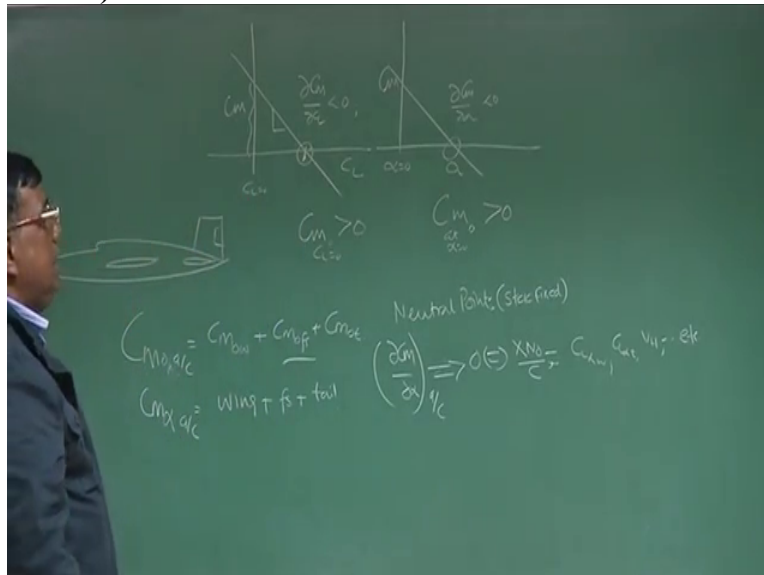 Cm ∂Cm/∂CL < 0, CL CL=0
Cm ∂Cm/∂α < 0 α=0 α
Cm CL=0 > 0
Cm0 at α=0 > 0
Neutral Point: (stick fixed)
Cm0, a/c = Cm0w + Cm0fs + Cm0t
(∂Cm/∂α) a/c ⇒ 0 (=) XN0/C = CLαw, CLαt, VH, .. etc
Cmα a/c = wing + fs + tail